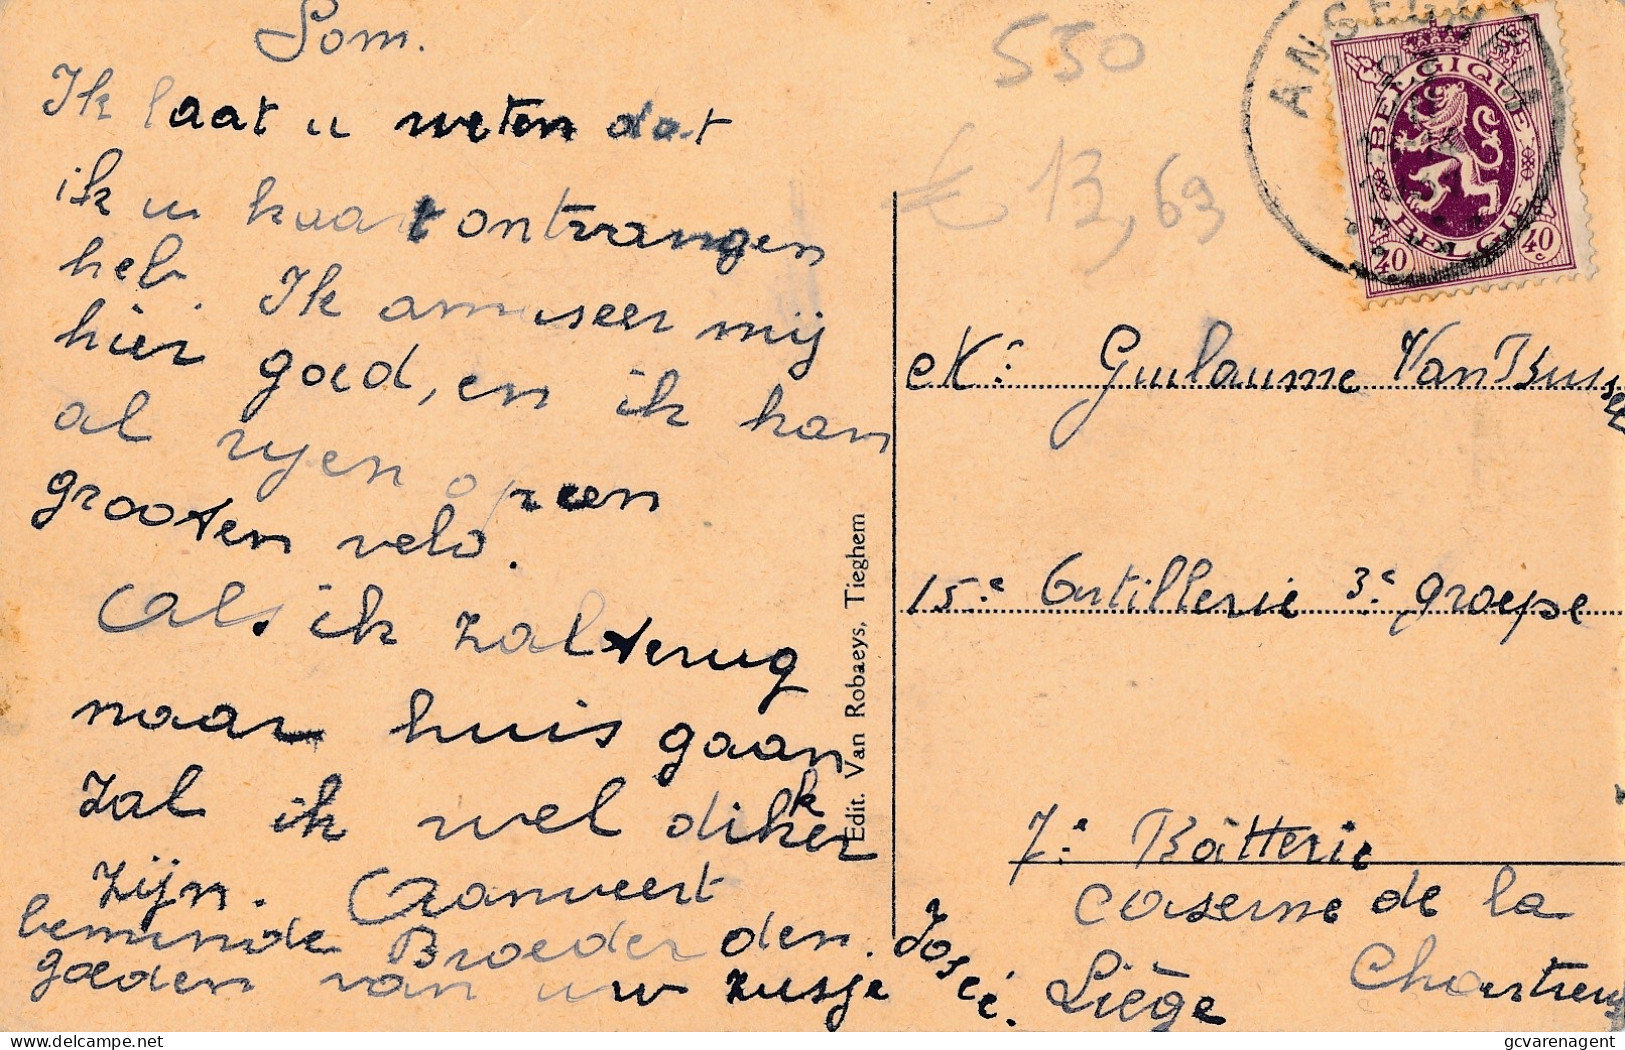 Som.
Ik laat u weten dat
ik u kaart ontvangen
heb. Ik amuseer mij
hier goed, en ik kan
al ryen op een
grooten velo.
Als ik zal terug
naar huis gaan
zal ik wel dikker
zijn. Aanveert
beminde Broeder den
goeden van uw zusje Josée.
Edit. Van Robaeys, Tieghem
550
€ 13,69
ANSEGEM
BELGIQUE
BELGIE
40 40c
Mr: Guilaume Van Bussel
15.e Artillerie 3.e groepe
7.e Batterie
Caserne de la
Chartreus
Liège
gcvarenagent